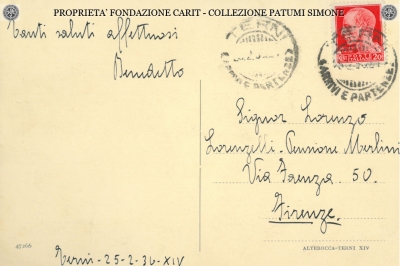 PROPRIETA' FONDAZIONE CARIT - COLLEZIONE PATUMI SIMONE
Tanti saluti affettuosi
Benedetto
TERNI
(ARRIVI E PARTENZE)
TERNI
(ARRIVI E PARTENZE)
Signor Lorenzo
Lorenzelli - Pensione Merlini
Via Faenza 50.
Firenze.
Terni - 25-2-36-XIV
ALTEROCCA - TERNI XIV